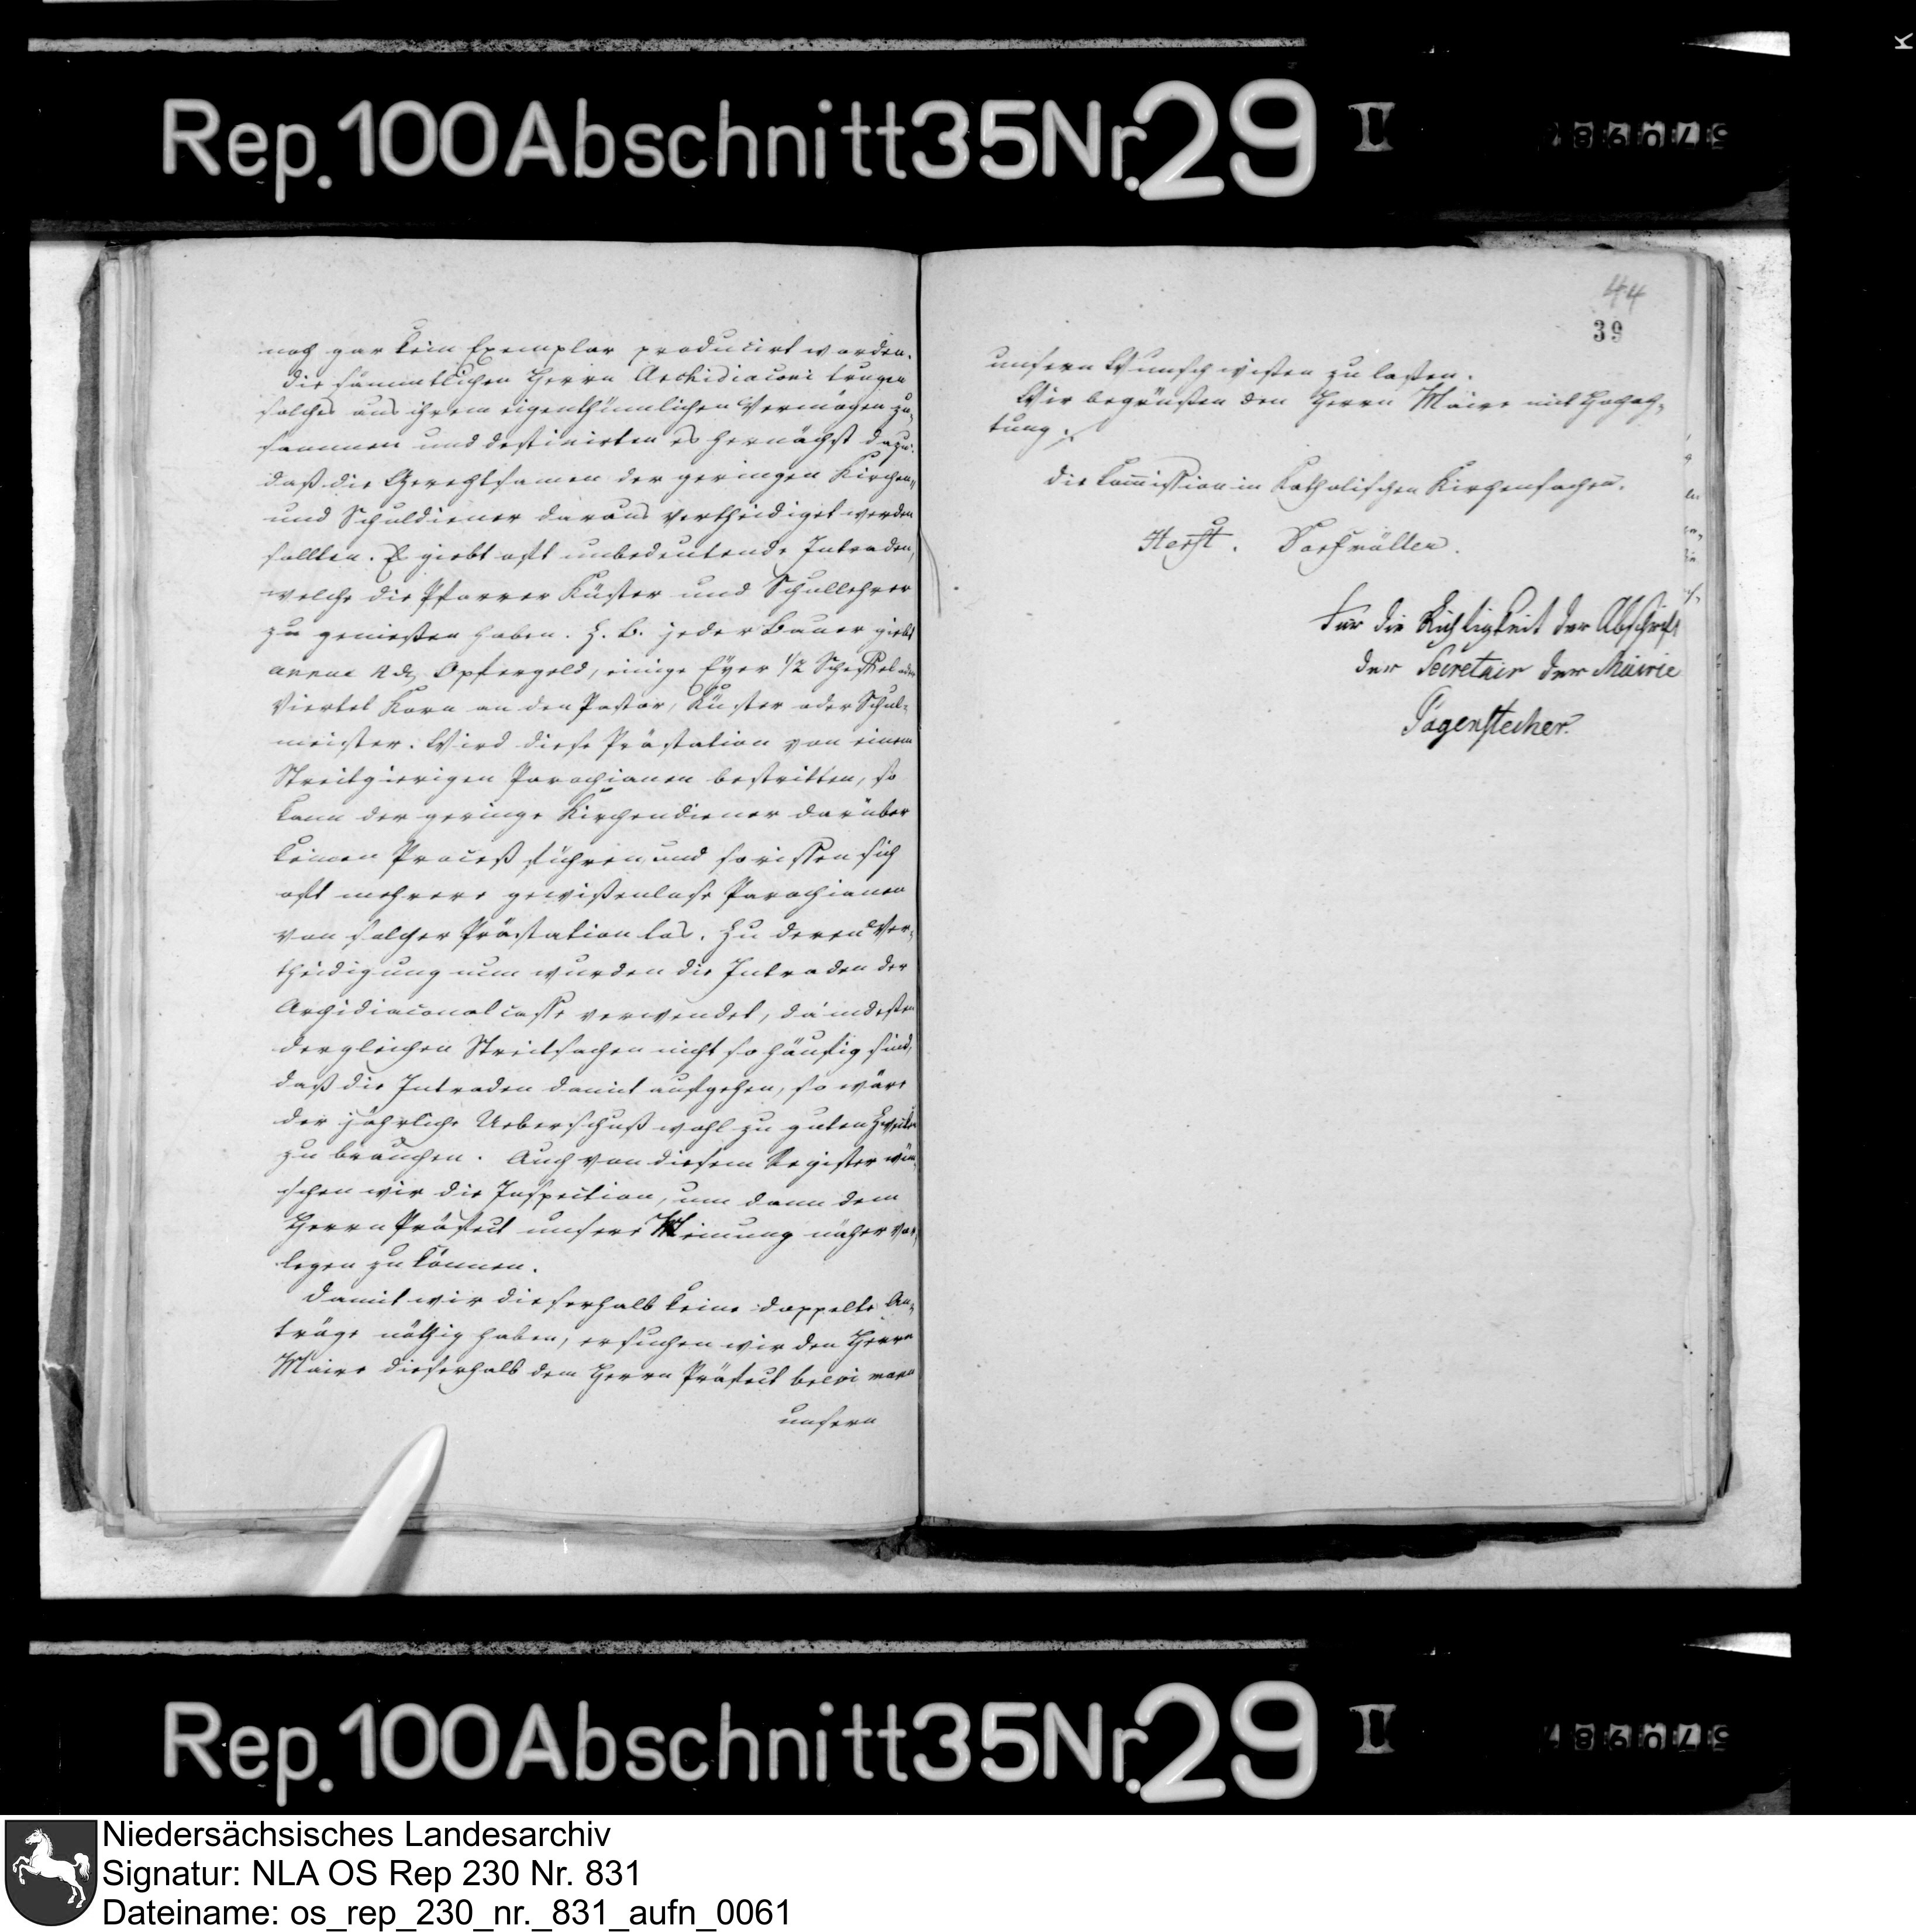 Rep. 100 Abschnitt 35 Nr. 29 I
noch gar kein Exemplar producirt worden.
Die sämmtlichen Herrn Archidiaconi trugen
solches aus ihrem eigenthümlichen Vermögen zu-
sammen und destinirten es hernächst dazu:
daß die Gerechtsamen der geringen Kirchen-
und Schuldiener daraus vertheidiget werden
sollten. Es giebt oft unbedeutende Intraden,
welche die Pfarrer Küster und Schullehrer
zu genießen haben. Z. B. jeder Bauer giebt
Opfergeld, einige Eyer 1/2 Scheffel oder
Viertel Korn an den Pastor, Küster oder Schul-
meister. Wird diese Prästation von einem
Streitgierigen Parochianen bestritten, so
kann der geringe Kirchendiener darüber
keinen Proceß führen, und so rissen sich
oft mehrere gewißenlose Parochianen
von solcher Prästation los. Zu deren Ver-
theidigung nun wurden die Intraden der
Archidiaconalcasse verwendet, da indeßen
dergleichen Streitsachen nicht so häufig sind,
daß die Intraden damit aufgehen, so wäre
der jährliche Ueberschuß wohl zu guten Zwecken
zu brauchen. Auch von diesem Register wün-
schen wir die Inspection, um dann dem
Herrn Präfect unsere Meinung näher vor-
legen zu können.
Damit wir dieserhalb keine doppelte An-
träge nöthig haben, ersuchen wir den Herrn
Maire dieserhalb dem Herrn Präfect
unsern
44
39
unsern Wunsch wißen zu laßen.
Wir begrüßen den Herrn Maire mit Hochach-
tung.
Die Commission in Katholischen Kirchensachen.
Für die Richtigkeit der Abschrift
der Secretair der Mairie
Pagenstecher.
Rep. 100 Abschnitt 35 Nr. 29 I
Niedersächsisches Landesarchiv
Signatur: NLA OS Rep 230 Nr. 831
Dateiname: os_rep_230_nr._831_aufn_0061